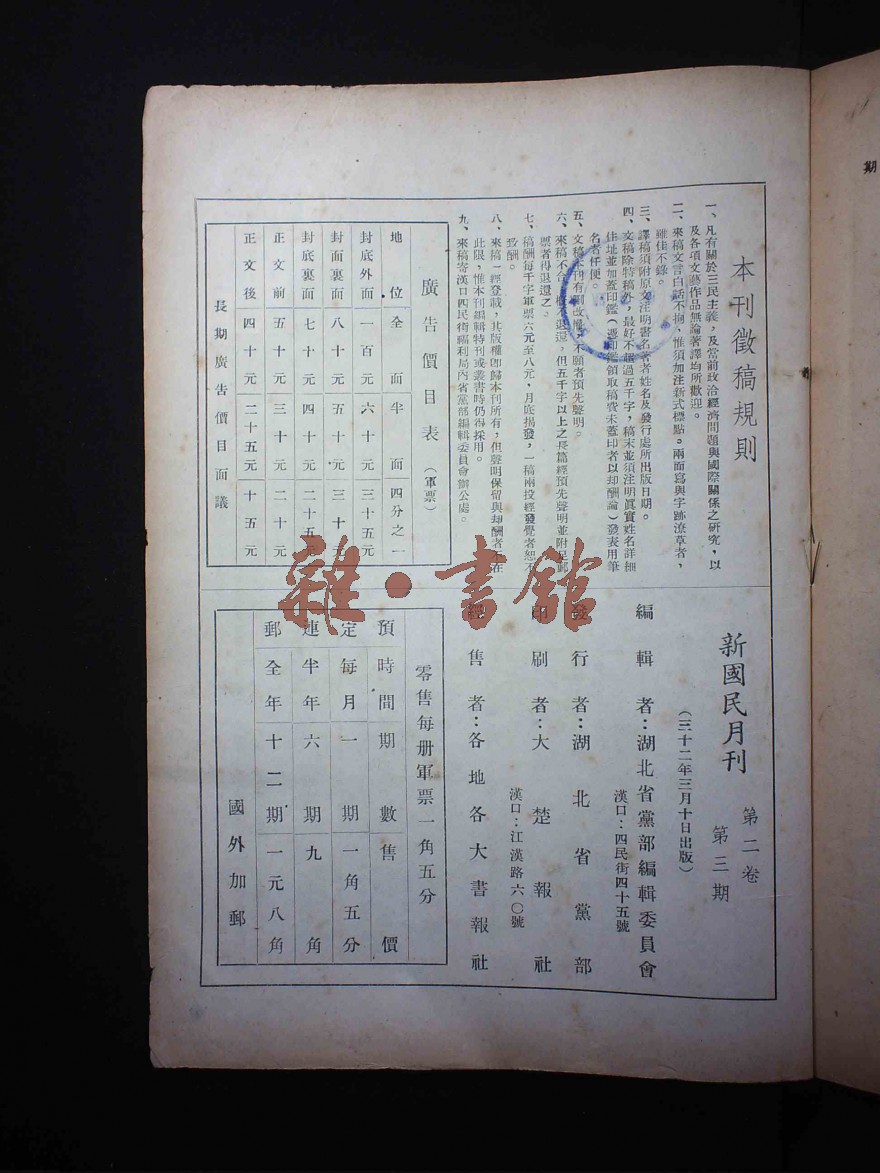 本刊徵稿規則
一、凡有關於三民主義，及當前政治經濟問題與國際關係之研究，以
及各項文藝作品無論著譯均所歡迎。
二、來稿文言白話不拘，惟須加注新式標點。兩面寫與字跡潦草者，
雖佳不錄。
三、譯稿須附原文注明書名著者姓名及發行處所出版日期。
四、文稿除特稿外，最好不超過五千字，稿末並須注明真實姓名詳細
住址並加蓋印鑑（憑印鑑領取稿費未蓋印者以却酬論）發表用筆
名者任便。
五、文稿本刊有刪改權，不願者預先聲明。
六、來稿不合，概不退還，但五千字以上之長篇經預先聲明並附足郵
票者再退還之。
七、稿酬每千字軍票六元至八元，月底揭發，一稿兩投經發覺者恕不
致酬。
八、來稿一經登載，其版權卽歸本刊所有，但聲明保留與却酬者不在
此限，惟本刊編輯特刊或叢書時仍得採用。
九、來稿寄漢口四民街福利局內省黨部編輯委員會辦公處。
廣告價目表（軍票）
地位 全面 半面 四分之一
封底外面 一百元 六十元 三十五元
封面裏面 八十元 五十元 三十元
封底裏面 七十元 四十元 二十五元
正文前 五十元 三十元 二十元
正文後 四十元 二十五元 十五元
長期廣告價目面議
新國民月刊 第二卷 第三期
（三十二年三月十日出版）
編輯者：湖北省黨部編輯委員會
漢口：四民街四十五號
發行者：湖北省黨部
印刷者：大楚報社
漢口：江漢路六〇號
經售者：各地各大書報社
零售每册軍票一角五分
預定連郵
時間 期數 售價
每月 一期 一角五分
半年 六期 九角
全年 十二期 一元八角
國外加郵
雜·書館
期